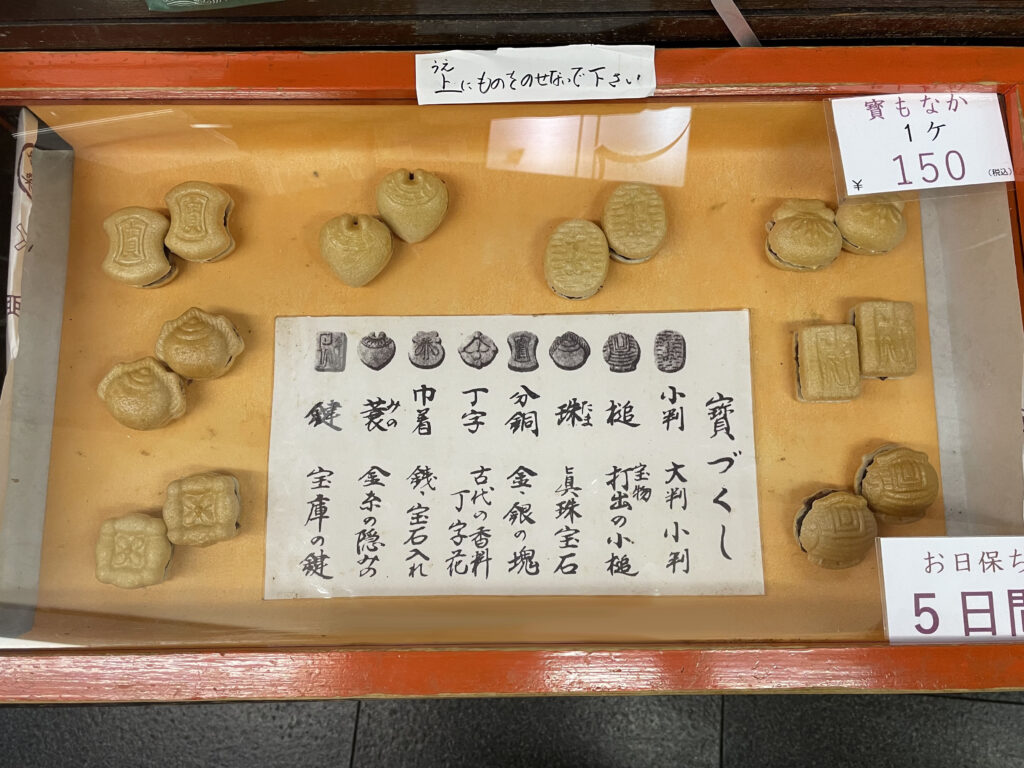 うえ
上にものをのせないで下さい
寶もなか
1ケ
¥150(税込)
寶づくし
小判 大判小判
槌 宝物 打出の小槌
珠 たま 眞珠宝石
分銅 金、銀の塊
丁字 古代の香料 丁字花
巾着 銭、宝石入れ
蓑 みの 金糸の隠みの
鍵 宝庫の鍵
お日保ち
5日間